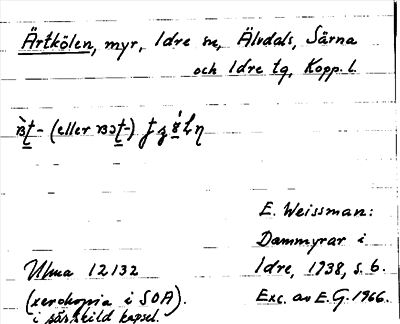 Ärtkölen, myr, Idre sn, Älvdals, Särna
och Idre tg, Kopp. l.
(eller
E. Weissman:
Dammyrar i
Idre, 1938, s. 6.
Exc. av E.G. 1966.
Ulma 12132
(xerokopia i SOA).
i särskild kapsel.